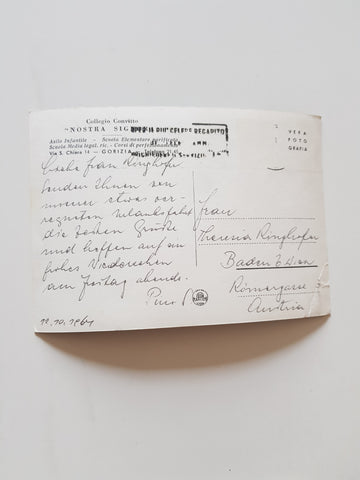 Collegio Convitto
"NOSTRA SIG
Asilo Infantile - Scuola Elementare parificata
Scuola Media legal. ric. - Corsi di
Via S. Chiara 14 - GORIZIA - Telefono
VERA
FOTO
GRAFIA
Frau Ringhofer
Senden Ihnen von
unserer etwas ver-
regneten Urlaubsfahrt
die Grüße
und hoffen auf ein
frohes Wiedersehen
am Freitag abends.
12.10.1964
Frau
Theresia Ringhofer
Baden b Wien
Römergasse
Austria